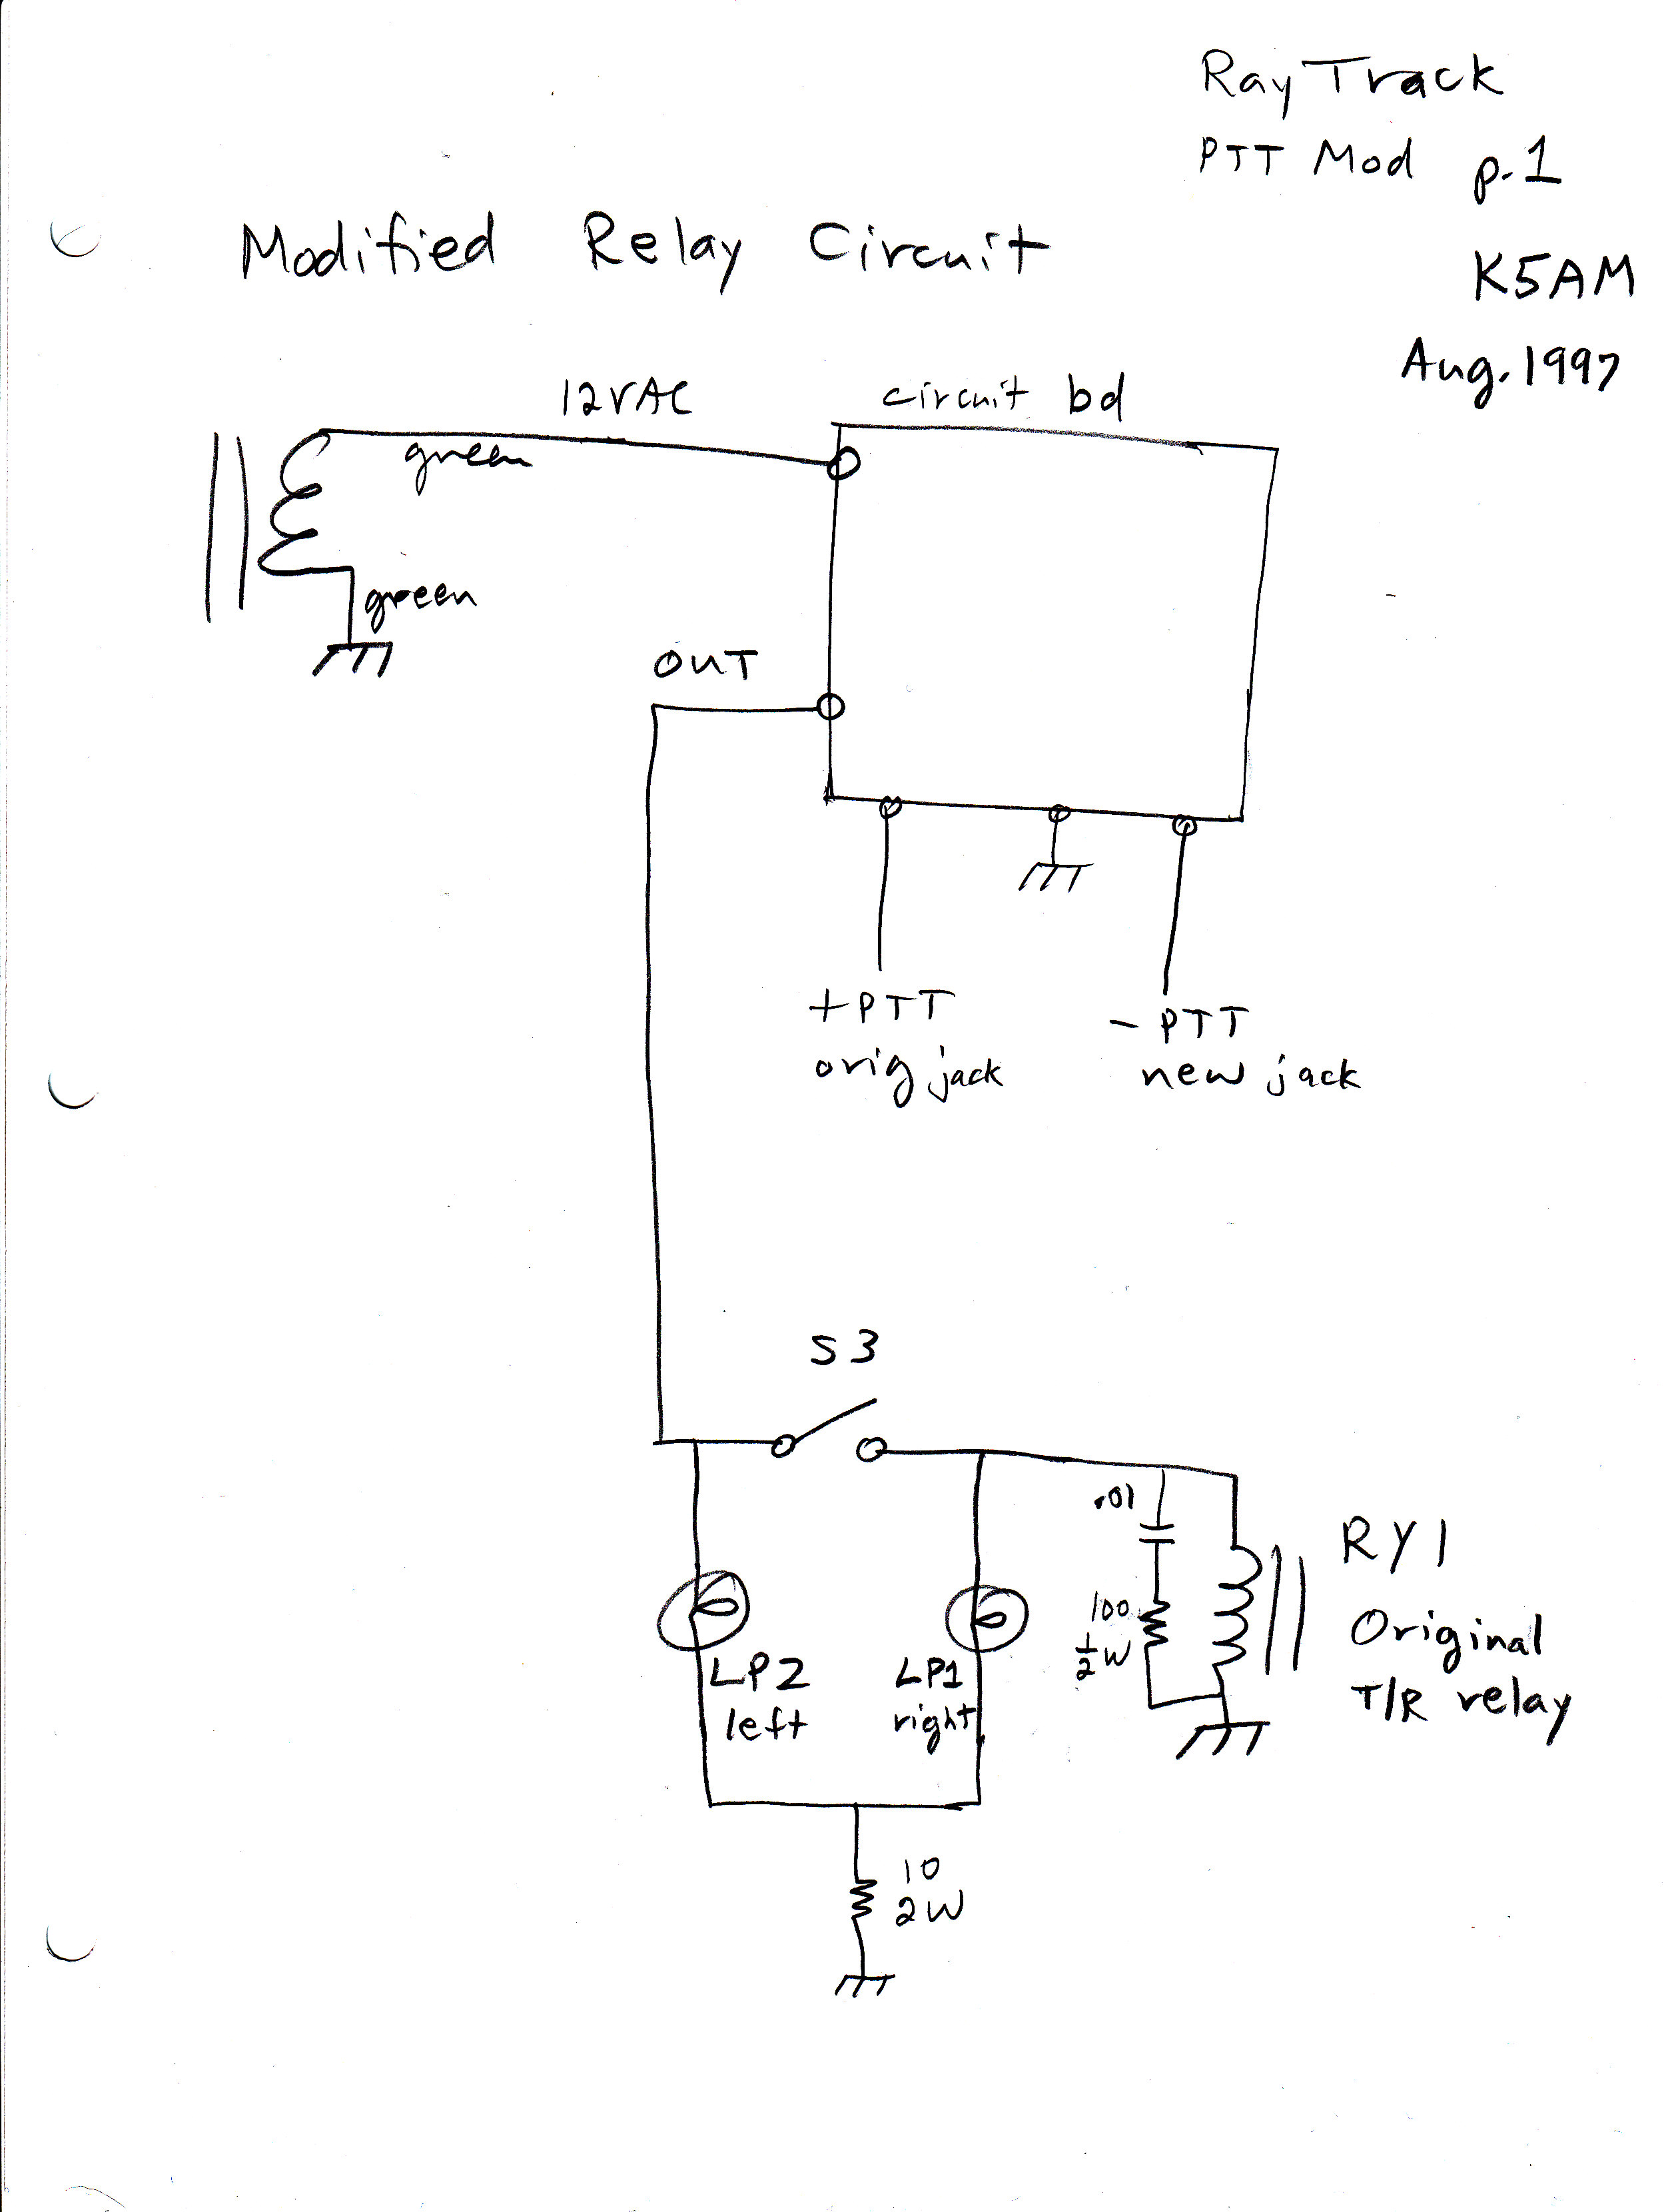 Ray Track
PTT Mod p.1
K5AM
Aug. 1997
Modified Relay Circuit
12VAC
circuit bd
green
green
OUT
+PTT
orig jack
- PTT
new jack
S3
.01
100
1/2 W
RY1
Original
T/R relay
LP2
left
LP1
right
10
2W